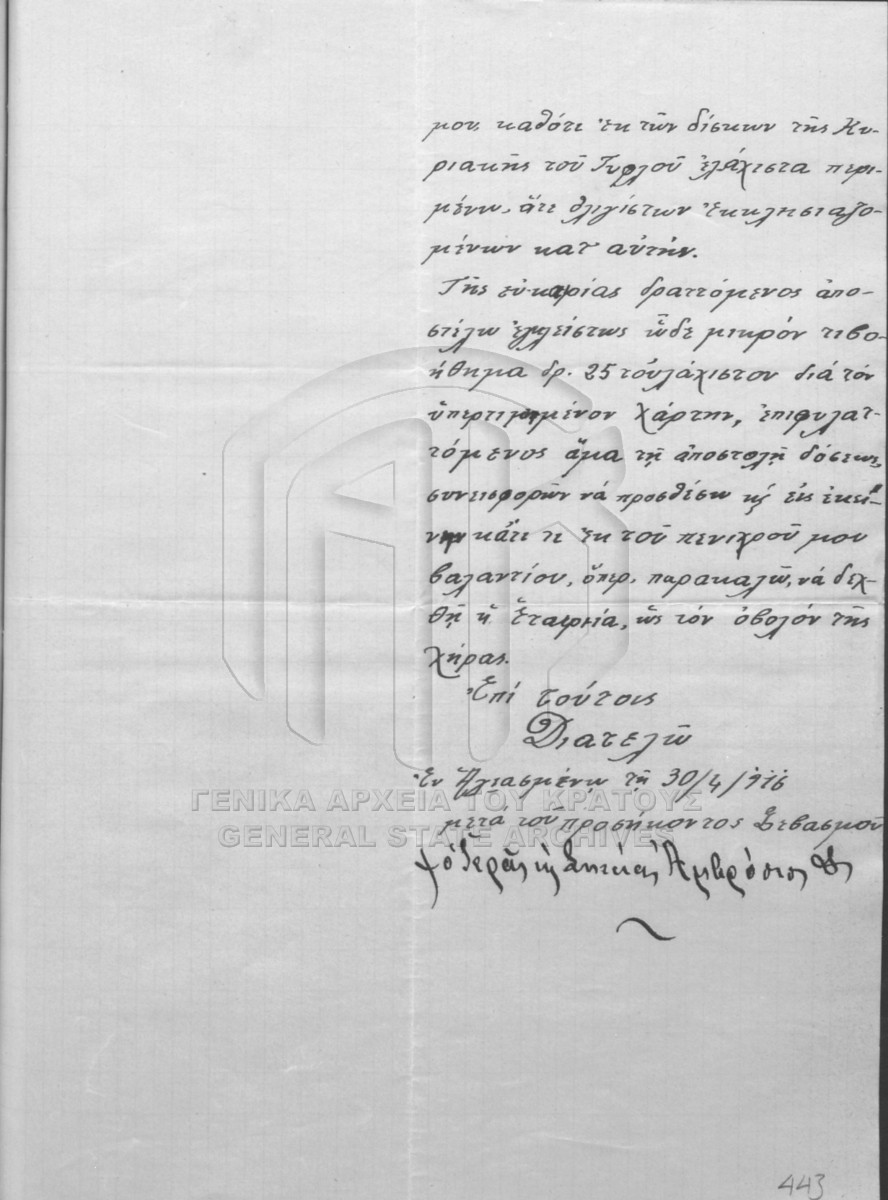 μου, καθότι ἐκ τῶν δίσκων τῆς Κυ-
ριακῆς τοῦ Τυφλοῦ ἐλάχιστα περι-
μένω, ἅτε ὀλιγίστων ἐκκλησιαζο-
μένων κατ' αὐτήν.
Τῆς εὐκαιρίας δραττόμενος ἀπο-
στέλω ἐγκλείστως ὧδε μικρόν τι βο-
ήθημα δρ. 25 τοὐλάχιστον διὰ τόν
ὑπερτιμημένον χάρτην, ἐπιφυλατ-
τόμενος ἅμα τῇ ἀποστολῇ δόσεως
συνεισφορῶν νά προσθέσω κ' εἰς ἐκεί-
νην κἄτι τι ἐκ τοῦ πενιχροῦ μου
βαλαντίου, ὅπερ, παρακαλῶ, νά δεχ-
θῇ ἡ Ἑταιρεία, ὡς τόν ὀβολόν τῆς
χήρας.
Ἐπί τούτοις
Διατελῶ
Ἐν Ἁγιασμένῳ τῇ 30/4/916
μετά τοῦ προσήκοντος Σεβασμοῦ
ὁ Ἱερᾶς κ Σητείας Ἀμβρόσιος
ΓΕΝΙΚΑ ΑΡΧΕΙΑ ΤΟΥ ΚΡΑΤΟΥΣ
GENERAL STATE ARCHIVES
443